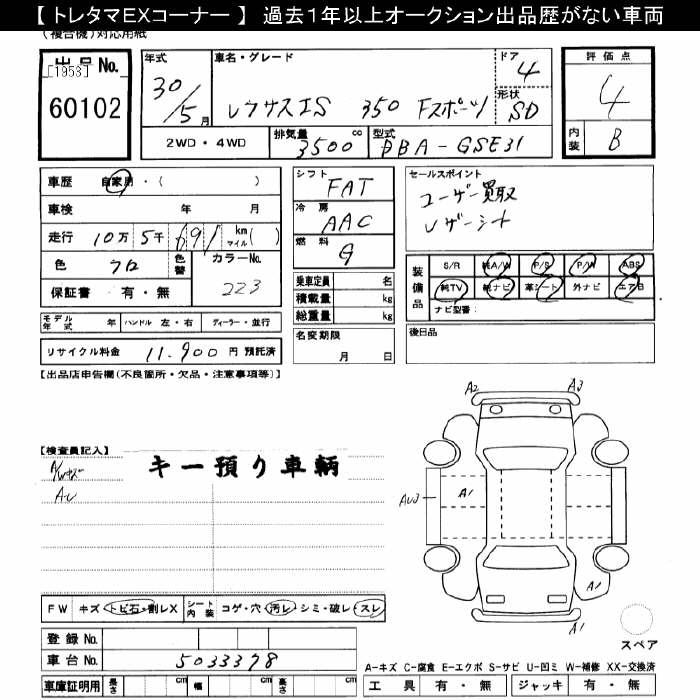 【トレタマEXコーナー】 過去1年以上オークション出品歴がない車両
(複合機)対応用紙
出品No. [1953] 60102
年式 30/5月
車名・グレード レクサスIS 350 Fスポーツ
ドア 4
形状 SD
評価点 4
内装 B
2WD・4WD
排気量 3500 cc
型式 DBA-GSE31
車歴 自家用・( )
車検 年 月
走行 10万 5千 691 km マイル( )
色 クロ
色替
カラーNo. 223
保証書 有・無
シフト FAT
冷房 AAC
燃料 G
乗車定員 名
積載量 kg
総重量 kg
セールスポイント
ユーザー買取
レザーシート
装備品 S/R 純A/W P/S P/W ABS
純TV 純ナビ 革シート 外ナビ エアB
ナビ型番:
モデル年式 年 ハンドル 左・右 ディーラー・並行
リサイクル料金 11,900 円 預託済
名変期限 月 日
後日品
【出品店申告欄(不良箇所・欠品・注意事項等)】
【検査員記入】
キー預り車輌
AU
A2 A3
AU3 A1
A1
A1
FW キズ・トビ石・割レX シート内装 コゲ・穴・汚レ・シミ・破レ・スレ
登録No.
車台No. 5033378
スペア
車庫証明用 長さ cm 幅 cm 高さ cm
A-キズ C-腐食 E-エクボ S-サビ U-凹ミ W-補修 XX-交換済
工具 有・無 ジャッキ 有・無